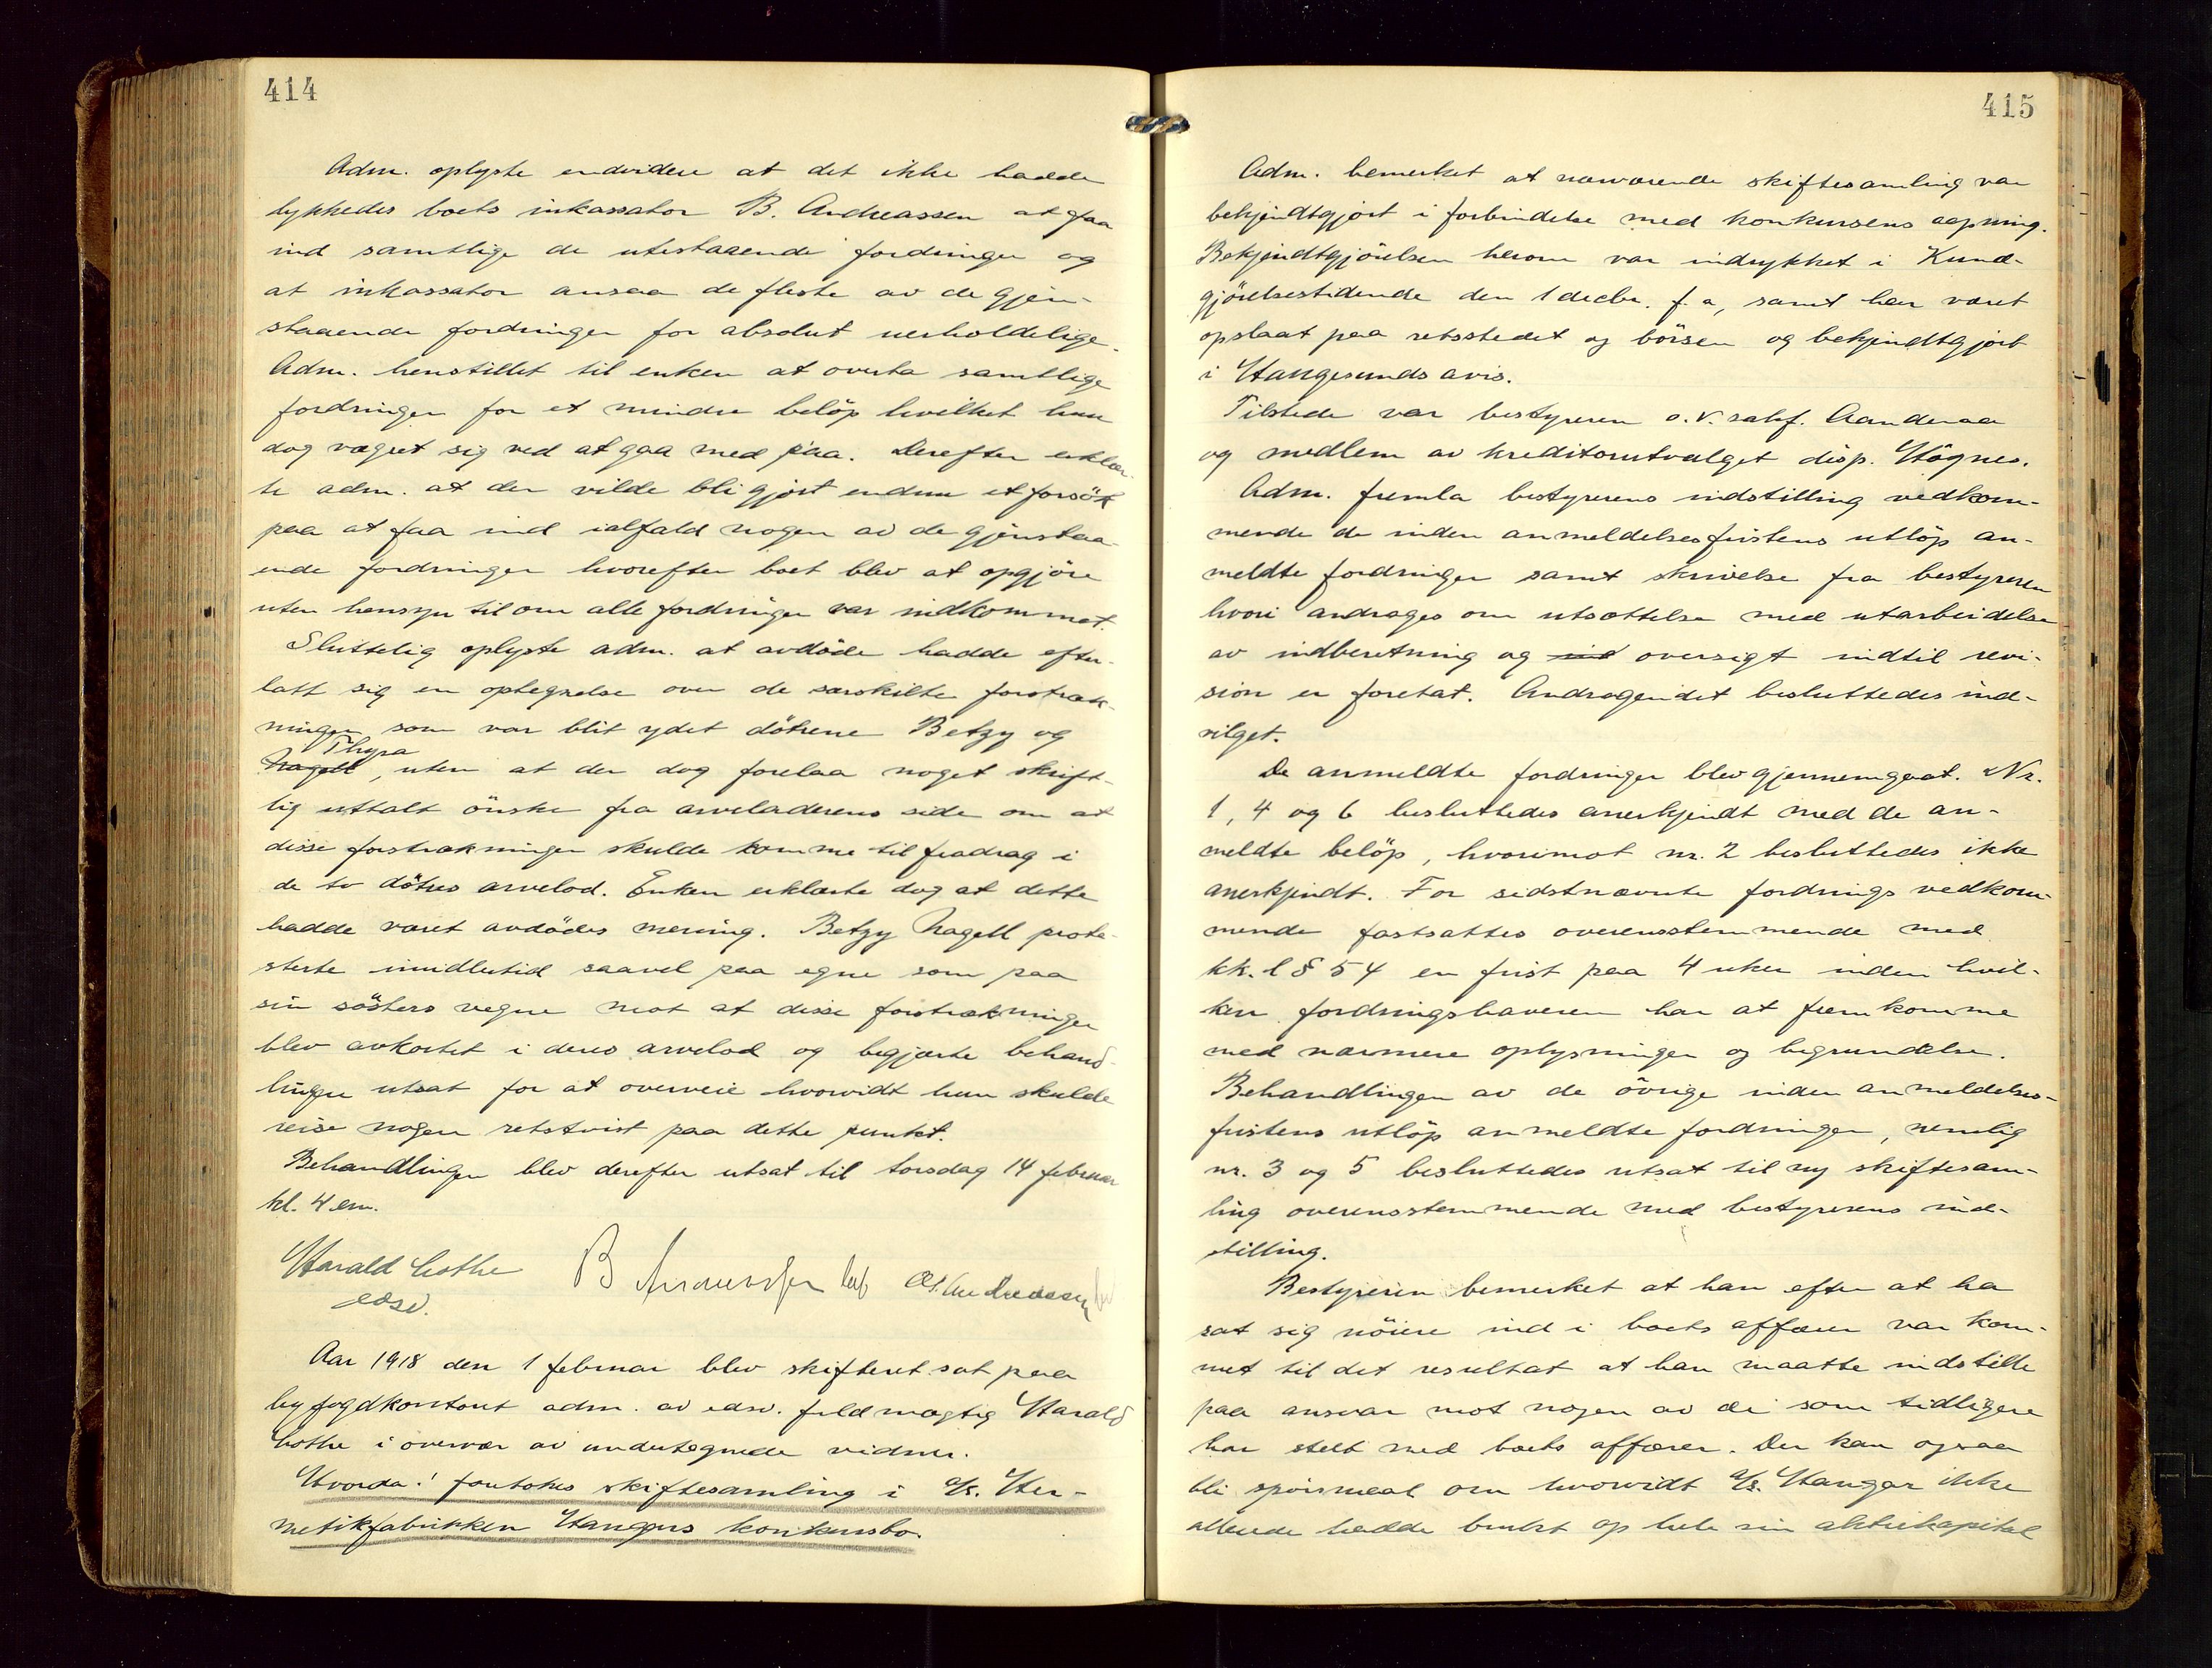 414
Adm. oplyste endvidere at det ikke hadde
lykkedes boets inkassator B. Andreassen at faa
ind samtlige de utestaaende fordringer og
at inkassator ansaa de fleste av de gjen-
staaende fordringer for absolut uerholdelige.
Adm. henstillet til enken at overta samtlige
fordringer for et mindre beløp hvilket hun
dog vægret sig ved at gaa med paa. Derefter erklær
te adm. at der vilde bli gjort endnu et forsök
paa at faa ind ialfald nogen av de gjenstaa-
ende fordringer hvorefter boet blev at opgjöre
uten hensyn til om alle fordringer var indkommet.
Sluttelig oplyste adm. at avdöde hadde efter-
latt sig en optegnelse over de særskilte forstræk-
ninger som var blit ydet dötrene Betzy og
Thyra
Nagell, uten at der dog forelaa noget skrift-
lig uttalt önske fra arveladerens side om at
disse forstrækninger skulde komme til fradrag i
de to dötres arvelod. Enken erklærte dog at dette
hadde været avdödes mening. Betzy Nagell prote-
sterte imidlertid saavel paa egne som paa
sin sösters vegne mot at disse forstrækninger
blev avkortet i deres arvelod og begjærte behand-
lingen utsat for at overveie hvorvidt hun skulde
reise nogen retstvist paa dette punkt.
Behandlingen blev derefter utsat til torsdag 14 februar
kl. 4 em.
Harald Lothe
edsv.
Aar 1918 den 1 februar blev skifteret sat paa
byfogdkontoret adm. av edsv. fuldmægtig Harald
Lothe i overvær av undertegnede vidner.
Hvorda! foretokes skiftesamling i A/S. Her-
metikfabrikken Hangars konkursbo.
415
Adm. bemerket at nærværende skiftesamling var
bekjendtgjort i forbindelse med konkursens aapning.
Bekjendtgjörelsen herom var indrykket i Kund-
gjörelsestidende den 1 decbr. f. a, samt har været
opslaat paa retsstedet og börsen og bekjendtgjort
i Haugesunds avis.
Tilstede var bestyreren o.r.sakf. Aanderaa
og medlem av kreditorutvalget disp. Högnes.
Adm. fremla bestyrerens indstilling vedkom-
mende de inden anmeldelsesfristens utlöp an-
meldte fordringer samt skrivelse fra bestyreren
hvori androges om utsættelse med utarbeidelse
av indberetning og oversigt indtil revi-
sion er foretat. Andragendet besluttedes ind-
vilget.
De anmeldte fordringer blev gjennemgaat. Nr.
1, 4 og 6 besluttedes anerkjendt med de an-
meldte belöp, hvorimot nr. 2 besluttedes ikke
anerkjendt. For sidstnævnte fordrings vedkom-
mende fastsattes overensstemmende med
kk. l § 54 en frist paa 4 uker inden hvil-
ken fordringshaveren har at fremkomme
med nærmere oplysninger og begrundelse.
Behandlingen av de övrige inden anmeldelses-
fristens utlöp anmeldte fordringer, nemlig
nr. 3 og 5 besluttedes utsat til ny skiftesam-
ling overensstemmende med bestyrerens ind-
stilling.
Bestyreren bemerket at han efter at ha
sat sig nöiere ind i boets affærer var kom-
met til det resultat at han maatte indstille
paa ansvar mot nogen av de som tidligere
har stelt med boets affærer. Der kan ogsaa
bli spörsmaal om hvorvidt A/S. Hangar ikke
allerede hadde brukt op hele sin aktiekapital